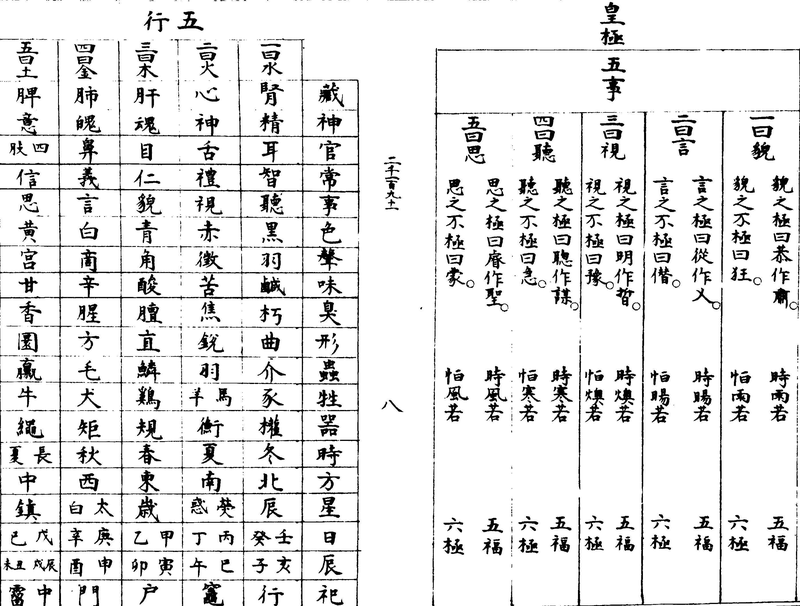 皇極
五事
一曰貌
貌之極曰恭作肅。
時雨若
五福
貌之不極曰狂。
恒雨若
六極
二曰言
言之極曰從作乂。
時暘若
五福
言之不極曰僭。
恒暘若
六極
三曰視
視之極曰明作哲。
時燠若
五福
視之不極曰豫。
恒燠若
六極
四曰聽
聽之極曰聰作謀。
時寒若
五福
聽之不極曰急。
恒寒若
六極
五曰思
思之極曰睿作聖。
時風若
五福
思之不極曰蒙。
恒風若
六極
八
五行
藏神官常事色聲味臭形蟲牲器時方星日辰祀
一曰水腎精耳智聽黑羽鹹朽曲介豕權冬北辰壬癸亥子行
二曰火心神舌禮視赤徵苦焦銳羽馬羊衡夏南熒惑丙丁巳午竈
三曰木肝魂目仁貌青角酸膻直鱗鷄規春東歲甲乙寅卯户
四曰金肺魄鼻義言白商辛腥方毛犬矩秋西太白庚辛申酉門
五曰土脾意四肢信思黃宮甘香圜臝牛繩長夏中鎮戊己辰戌丑未中霤